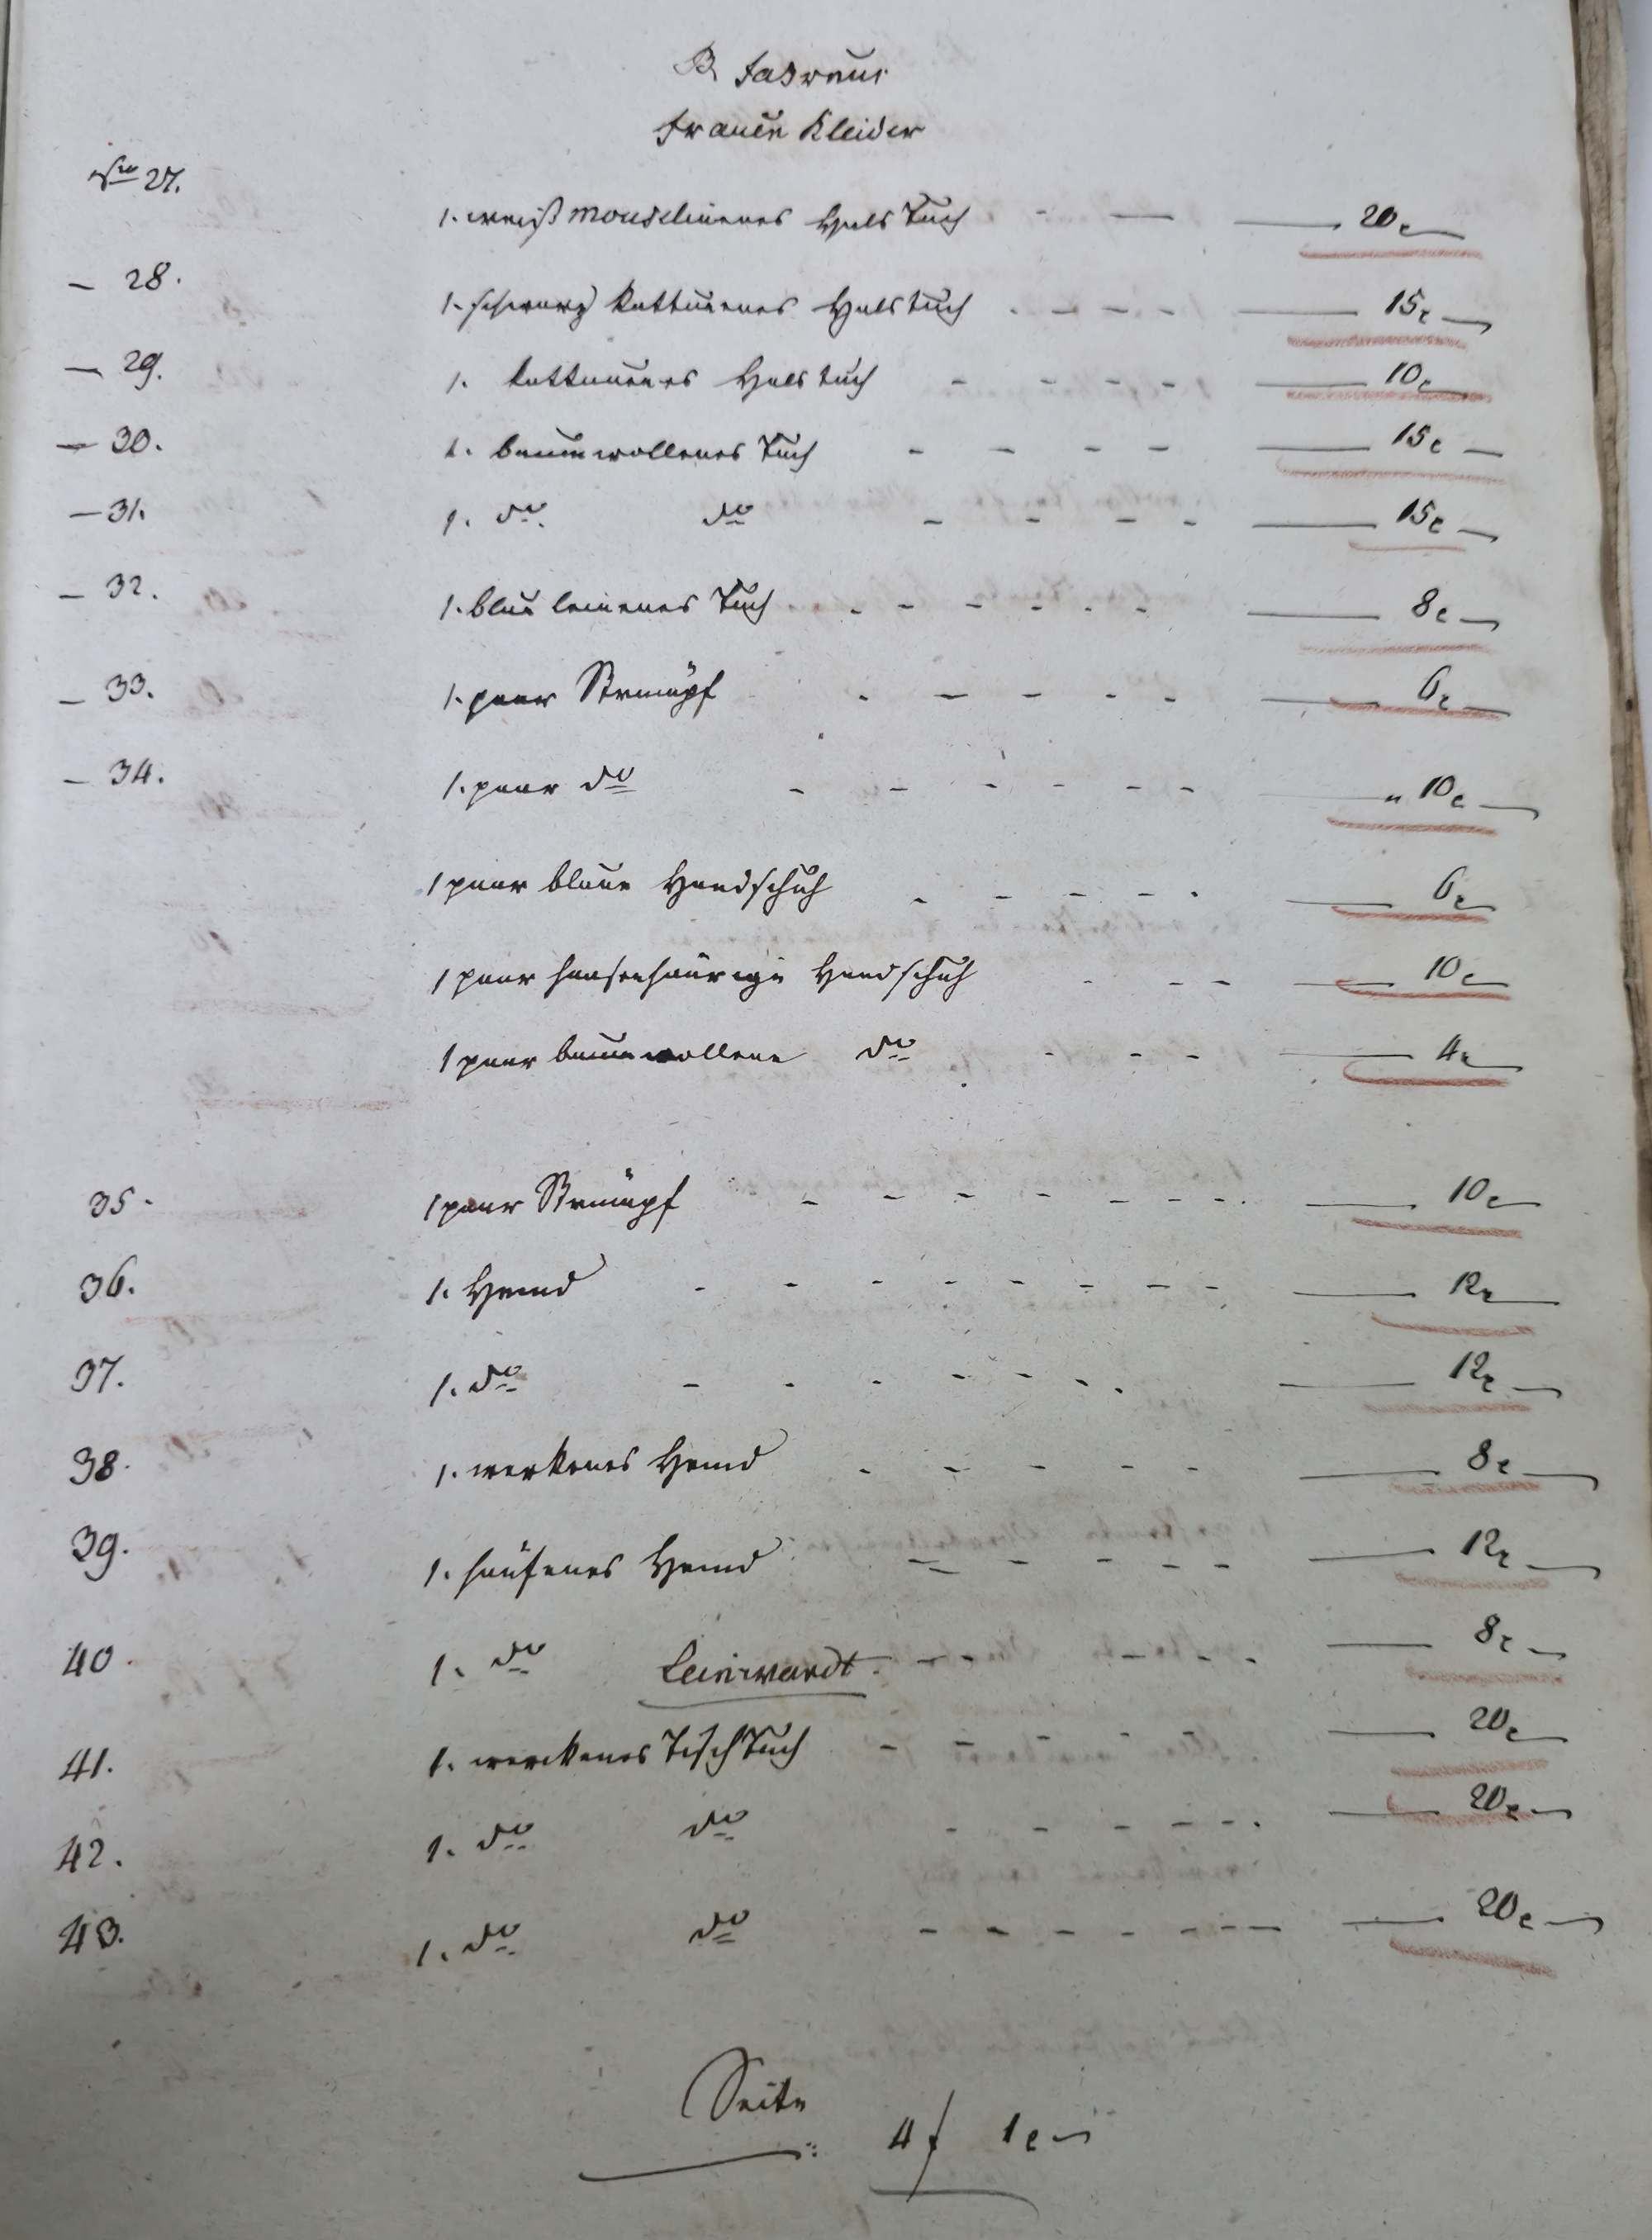 Fahrnus
Frauen Kleider
No 27. 1. weiß mouselinenes Hals Tuch - — — 20 x
— 28. 1. schwarz kattunenes Halstuch - - - - — 15 x
— 29. 1. kattunenes Halstuch - - - - — 10 x
— 30. 1. baumwollenes Tuch - - - - — 15 x
— 31. 1. do. do - - - - — 15 x
— 32. 1. blau leinenes Tuch - - - - - - — 8 x
— 33. 1. paar Strümpf - - - - - — 6 x
— 34. 1. paar do - - - - - - — " 10 x
1 paar blaue Handschuh - - - - — 6 x
1 paar haasenhäurige Handschuh - - - — 10 x
1 paar baumwollene do - - - — 4 x
35. 1 paar Strümpf - - - - - - - — 10 x
36. 1. Hemd - - - - - - - - — 12 x
37. 1. do - - - - - - - — 12 x
38. 1. werkenes Hemd - - - - - — 8 x
39. 1. häufenes Hemd - - - - - — 12 x
40. 1. do - - - - — 8 x
Leinwandt.
41. 1. werckenes Tisch Tuch - - - - - — 20 x
42. 1. do do - - - - - - — 20 x
43. 1. do do - - - - - - — 20 x
Seite 4 f 1 x